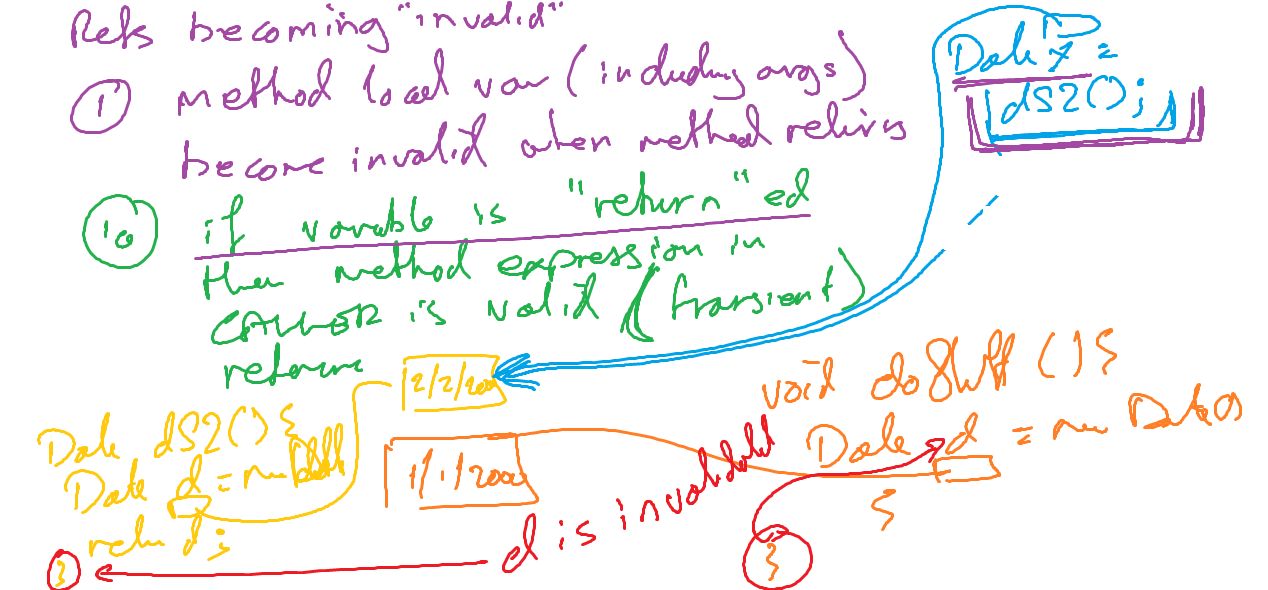 Refs becoming "invalid"
① method local var (including args)
become invalid when method retires
1a if variable is "return" ed
then method expression in
CALLER is valid (transient)
Date x =
dS2();
2/2/2000
1/1/2000
Date dS2() {
Date d = new
return d;
}
d is invalid
void doStuff () {
Date d = new Date()
}